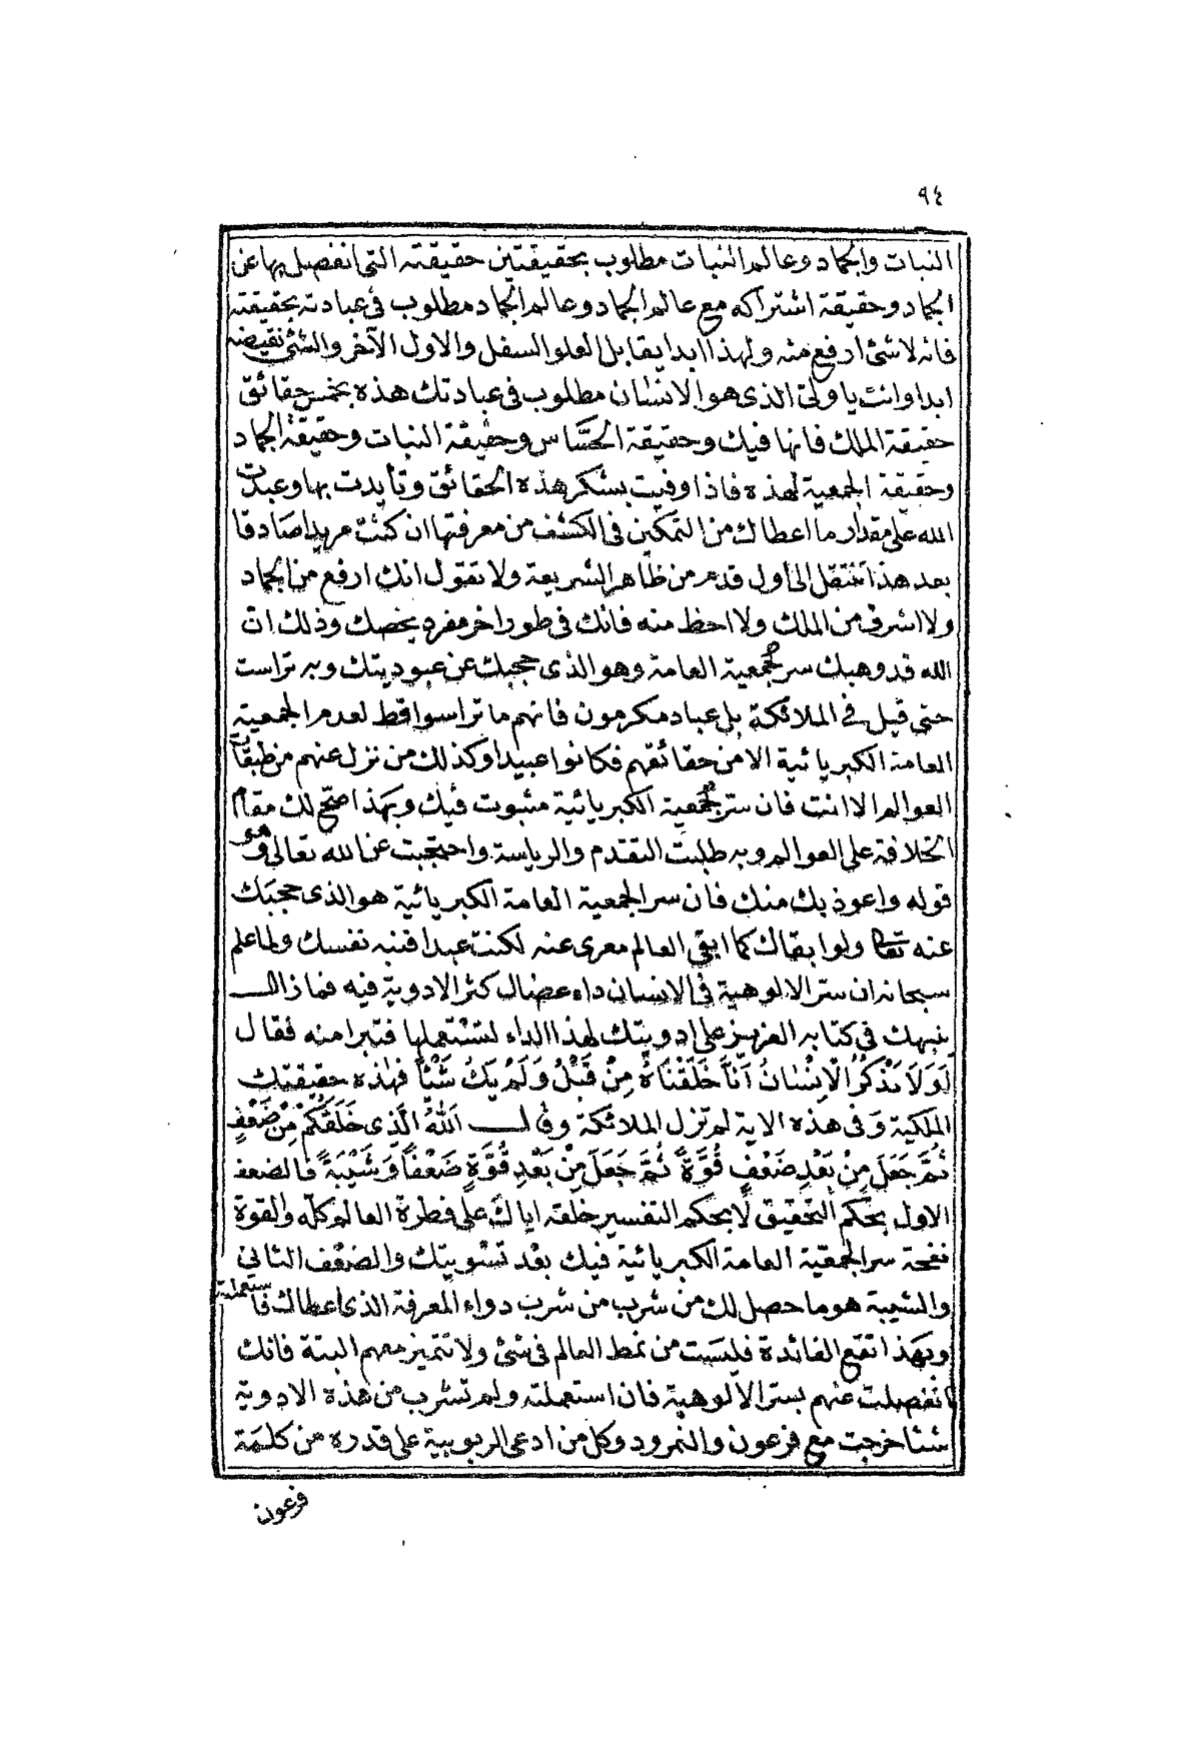 ٩٤
النبات والجماد وعالم النبات مطلوب بحقيقتين حقيقته التى انفصل بها عن
الجماد وحقيقة اشتراكه مع عالم الجماد وعالم الجماد مطلوب فى عبادته بحقيقته
فانه لا شئ ارفع منه ولهذا ابدا يقابل العلو السفل والاول الآخر والشئ نقيضه
ابدا وانت يا ولى الذى هو الانسان مطلوب فى عبادتك هذه بخمس حقائق
حقيقة الملك فانها فيك وحقيقة الحساس وحقيقة النبات وحقيقة الجماد
وحقيقة الجمعية لهذه فاذا وفيت بشكر هذه الحقائق وتأيدت بها وعبدت
الله على مقدار ما اعطاك من التمكين فى الكشف من معرفتها ان كنت مريدا صادقا
بعد هذا تنتقل الى اول قدم من ظاهر الشريعة ولا تقول انك ارفع من الجماد
ولا اشرف من الملك ولا احظ منه فانك فى طور اخر مفرد يخصك وذلك ان
الله قد وهبك سر الجمعية العامة وهو الذى حجبك عن عبوديتك وبه تراست
حتى قيل فى الملائكة بل عباد مكرمون فانهم ما تراسوا قط لعدم الجمعية
العامة الكبريائية الا من حقائقهم فكانوا عبيدا وكذلك من نزل عنهم من طبقات
العوالم الا انت فان سر الجمعية الكبريائية مثبوت فيك وبهذا صح لك مقام
الخلافة على العوالم وبه طلبت التقدم والرياسة واحتجبت عن الله تعالى وهو
قوله واعوذ بك منك فان سر الجمعية العامة الكبريائية هو الذى حجبك
عنه تعالى ولو ابقاك كما ابقى العالم معرى عنه لكنت عبدا فنبه نفسك ولما علم
سبحانه ان ستر الالوهية فى الانسان داء عضال كثر الادوية فيه فما زال
ينبهك فى كتابه العزيز على ادويتك لهذا الداء لتستعملها فتبرا منه فقال
لَوَلَا يَذْكُرُ الْاِنْسَانُ اَنَّا خَلَقْنَاهُ مِنْ قَبْلُ وَلَمْ يَكُ شَيْئًا فهذه حقيقتك
الملكية وفى هذه الاية لم تزل الملائكة وقال اَللّٰهُ الَّذِى خَلَقَكُمْ مِنْ ضَعْفٍ
ثُمَّ جَعَلَ مِنْ بَعْدِ ضَعْفٍ قُوَّةً ثُمَّ جَعَلَ مِنْ بَعْدِ قُوَّةٍ ضَعْفًا وَشَيْبَةً فالضعف
الاول بحكم التحقيق لا بحكم التفسير خلقه اياك على فطرة العالم كله والقوة
نفحة سر الجمعية العامة الكبريائية فيك بعد تسويتك والضعف الثانى
والشيبة هو ما حصل لك من شرب من شرب دواء المعرفة الذى اعطاك فاستعملته
وبهذا تقع الفائدة فليست من نمط العالم فى شئ ولا تتميز معهم البتة فانك
انفصلت عنهم بستر الالوهية فان استعملته ولم تشرب من هذه الادوية
شيئا خرجت مع فرعون والنمرود وكل من ادعى الربوبية على قدره من كلمة
فرعون